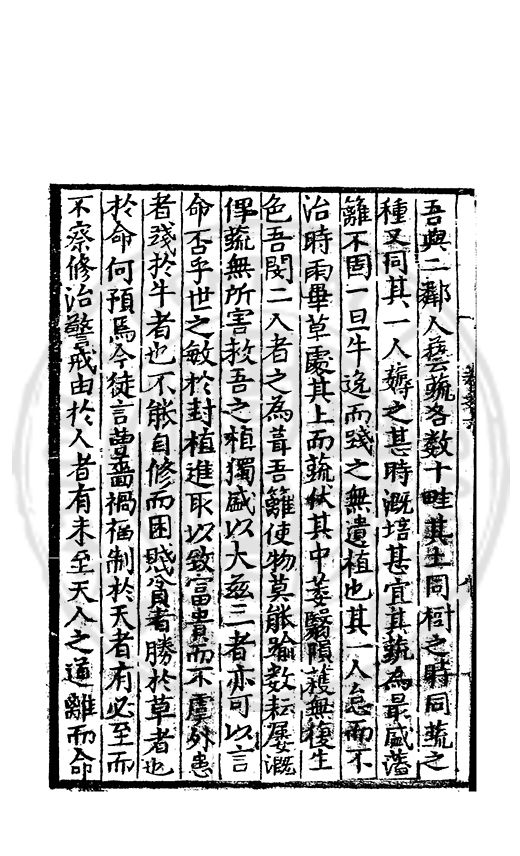 吾與二鄰人藝蔬各數十畦其土同樹之時同蔬之
種又同其一人耨之甚時溉培甚宜其蔬為最盛藩
籬不固一旦牛逸而殘之無遺植也其一人怠而不
治時雨畢草處其上而蔬伏其中萎翳隕蘀無復生
色吾閔二人者之為葺吾籬使物莫能踰數耘屢溉
俾蔬無所害故吾之植獨盛以大茲三者亦可以言
命否乎世之敏於封植進取以致富貴而不虞外患
者殘於牛者也不能自修而困賤貧者勝於草者也
於命何預焉今徒言豐嗇禍福制於天者有必至而
不察修治警戒由於人者有未至天人之道離而命